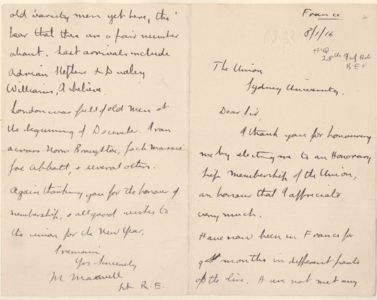 France
8/1/16
H.Q.
R.E.
The Union
Sydney University.
Dear Sir,
I thank you for honouring
me by electing me to an Honorary
ship membership of the Union,
an honour that I appreciate
very much.
Have now been in France for
months in different parts
of the line. I have not met any
old varsity men yet here, tho'
hear that there are a fair number
about. Last arrivals include
Adrian & Dudley
Williams, I believe.
London was full of old men at
the beginning of December. I ran
across Norm Broughton, Jack Massie
Joe Abbott, & several others.
Again thanking you for the honour of
membership, & all good wishes to
the union for the New Year,
I remain
Yrs. Sincerely
M Maxwell
Lt R.E.